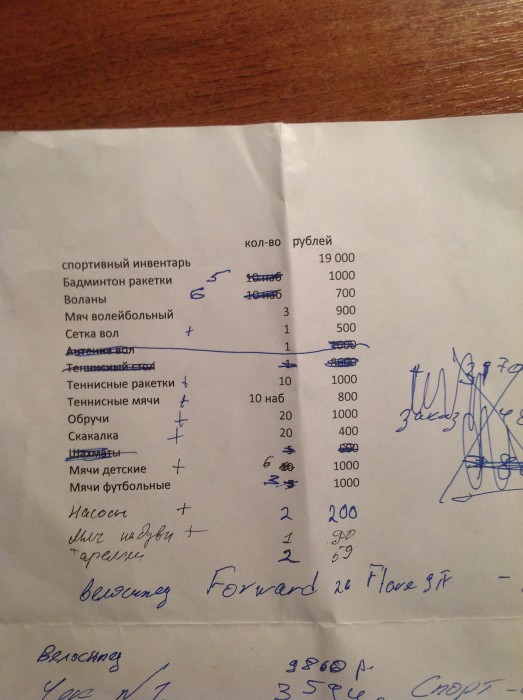 кол-во рублей
спортивный инвентарь 19 000
Бадминтон ракетки 5 10 наб 1000
Воланы 6 10 наб 700
Мяч волейбольный 3 900
Сетка вол + 1 500
Антенна вол 1
Теннисный стол 1
Теннисные ракетки + 10 1000
Теннисные мячи + 10 наб 800
Обручи + 20 1000
Скакалка + 20 400
Шахматы 5
Мячи детские + 6 1000
Мячи футбольные 3 5 1000
Насосы + 2 200
Мяч надувн + 1 90
Тарелки 2 59
заказ
Велосипед Forward 26 Flare
Велосипед 9860 р.
Чек №1 3594 Спорт -